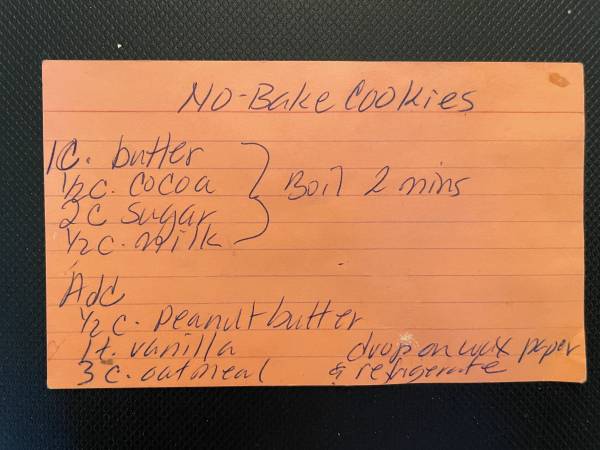 No-Bake Cookies
1 C. butter
1/2 C. cocoa
2 C sugar
1/2 C. milk
Boil 2 mins
Add
1/2 C. peanut butter
1 t. vanilla
3 C. oatmeal
drop on wax paper
& refrigerate